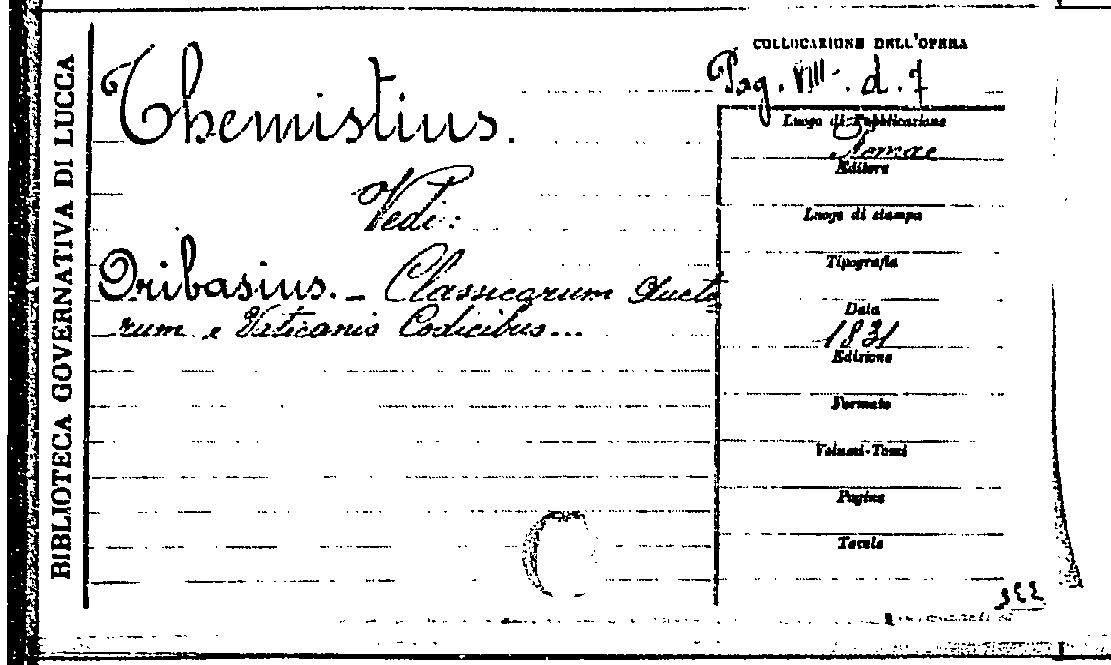 BIBLIOTECA GOVERNATIVA DI LUCCA
COLLOCAZIONE DELL'OPERA
Pag. VIII. d. 7
Themistius.
Vedi:
Oribasius. – Classicorum Aucto
rum e Vaticanis Codicibus...
Luogo di Pubblicazione
Romae
Editore
Luogo di stampa
Tipografia
Data
1831
Edizione
Formato
Volumi-Tomi
Pagine
Tavole